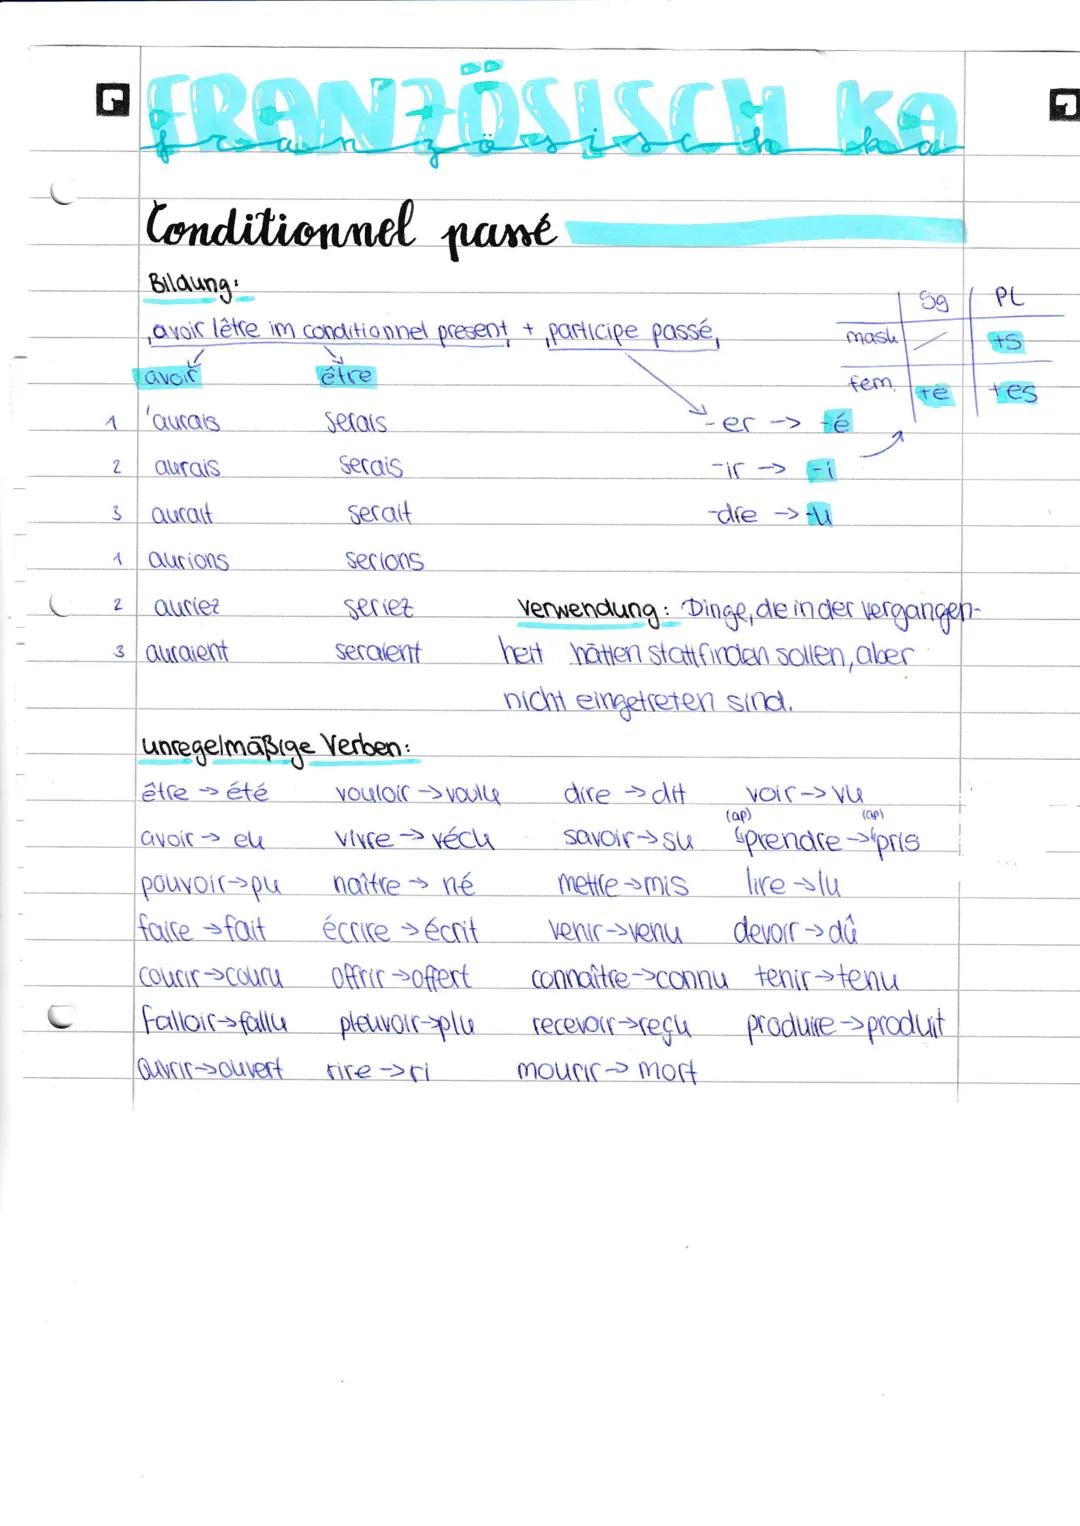 FRANZÖSISCH KA
französisch ka
Conditionnel passé
Bildung:
"avoir / être im conditionnel present" + "participe passé"
Sg PL
mask / +s
fem. +e +es
avoir être
1 'aurais serais
2 aurais serais
3 aurait serait
1 aurions serions
2 auriez seriez
3 auraient seraient
-er -> -é
-ir -> -i
-dre -> -u
Verwendung: Dinge, die in der vergangen-
heit hätten stattfinden sollen, aber
nicht eingetreten sind.
unregelmäßige Verben:
être -> été vouloir -> voulu dire -> dit voir -> vu
avoir -> eu vivre -> vécu savoir -> su (ap) prendre -> (ap) pris
pouvoir -> pu naître -> né mettre -> mis lire -> lu
faire -> fait écrire -> écrit venir -> venu devoir -> dû
courir -> couru offrir -> offert connaître -> connu tenir -> tenu
falloir -> fallu pleuvoir -> plu recevoir -> reçu produire -> produit
ouvrir -> ouvert rire -> ri mourir -> mort